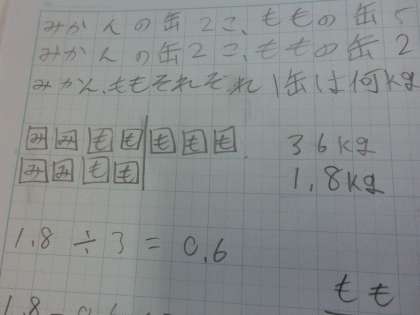 みかんの缶2こ、ももの缶5
みかんの缶2こ、ももの缶2
みかん、ももそれぞれ1缶は何kg
み み も も も も も 36kg
み み も も 1.8kg
1.8÷3=0.6
もも